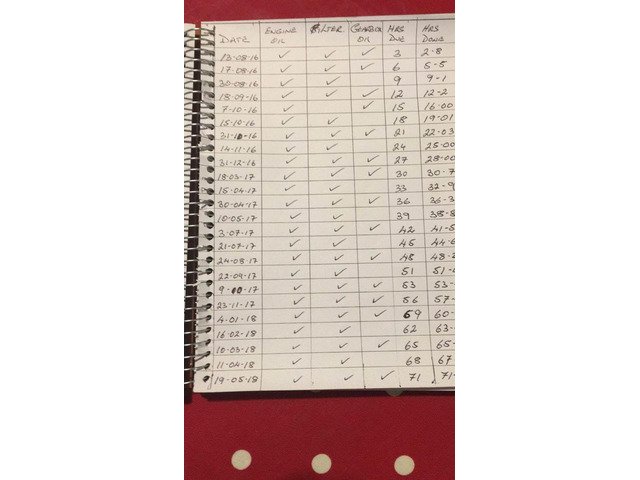 DATE ENGINE OIL FILTER GEARBOX OIL HRS DUE HRS DONE
13-08-16 ✓ ✓ ✓ 3 2-8
17-08-16 ✓ ✓ ✓ 6 5-5
30-08-16 ✓ ✓ 9 9-1
18-09-16 ✓ ✓ ✓ 12 12-2
7-10-16 ✓ ✓ 15 16.00
15-10-16 ✓ ✓ 18 19-01
31-10-16 ✓ ✓ ✓ 21 22-03
14-11-16 ✓ ✓ 24 25-00
31-12-16 ✓ ✓ ✓ 27 28-00
18-03-17 ✓ ✓ ✓ 30 30-7
15-04-17 ✓ ✓ 33 32-9
30-04-17 ✓ ✓ ✓ 36 36-3
10-05-17 ✓ ✓ 39 38-8
3-07-17 ✓ ✓ ✓ 42 41-5
21-07-17 ✓ ✓ 45 44-6
24-08-17 ✓ ✓ ✓ 48 48-2
22-09-17 ✓ ✓ 51 51-
9-10-17 ✓ ✓ ✓ 53 53-
23-11-17 ✓ ✓ ✓ 56 57-
4-01-18 ✓ ✓ ✓ 59 60-
16-02-18 ✓ ✓ 62 63-
10-03-18 ✓ ✓ ✓ 65 65-
11-04-18 ✓ ✓ 68 67
19-05-18 ✓ ✓ ✓ 71 71-